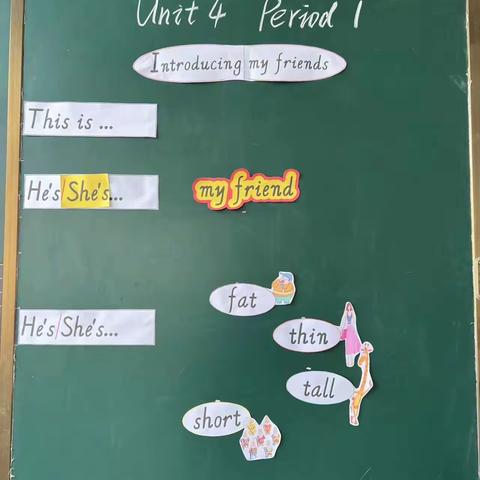 Unit 4 Period 1
Introducing my friends
This is ...
He's She's...
my friend
fat
thin
He's/She's...
tall
short